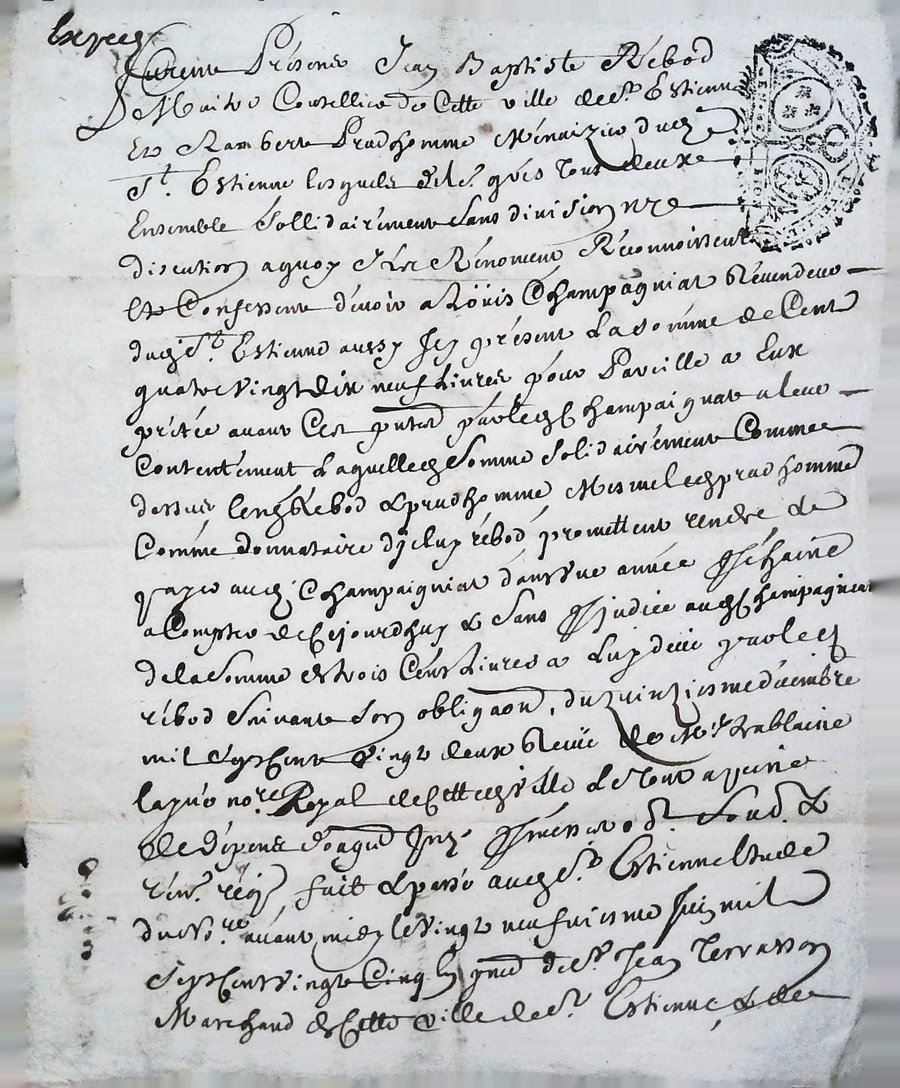 Furent Présens Jean Baptiste Rébod
Maitre Coutellier de Cette ville de St Estienne
Et Rambert Prudhomme Ménaizier dud
St. Estienne lesquels de tous deux
Ensemble Sollidairement sans division
discution a quoy Ils Rénoncent Réconnoissent
Et Confessent dévoir a Loüis Champagniat Révendeur
dud St Estienne aussy Icy présent La Somme de Cent
quatre vingt dix neuf Livres pour Pareille a Eux
prétée avant Cest par led Champaignat a leur
Contentément Laquelle Somme Solidairément Comme
dessus lesd Rébod & prudhomme Mesme led prudhomme
Comme donnataire diceluy rébod promettent rendre &
payer aud Champaigniat dans Une année Prochaine
a Compter de Cejourdhuy & Sans Préjudice aud Champagniat
de la Somme de trois Cens Livres a Luy deüe par led
rébod Suivant Son obligaon, du quinziesme décembre
mil Sept Cent Vingt deux Reçüe de Mr Tablaine
Royal de Cette ville Le tout a peine
de dépens
fait & passé aud St. Estienne Etude
du avant midy le vingt neufviesme Juin mil
Sept Cent Vingt Cinq En de Sr. Jean Terrasson
Marchand de Cette ville de St. Estienne, & de